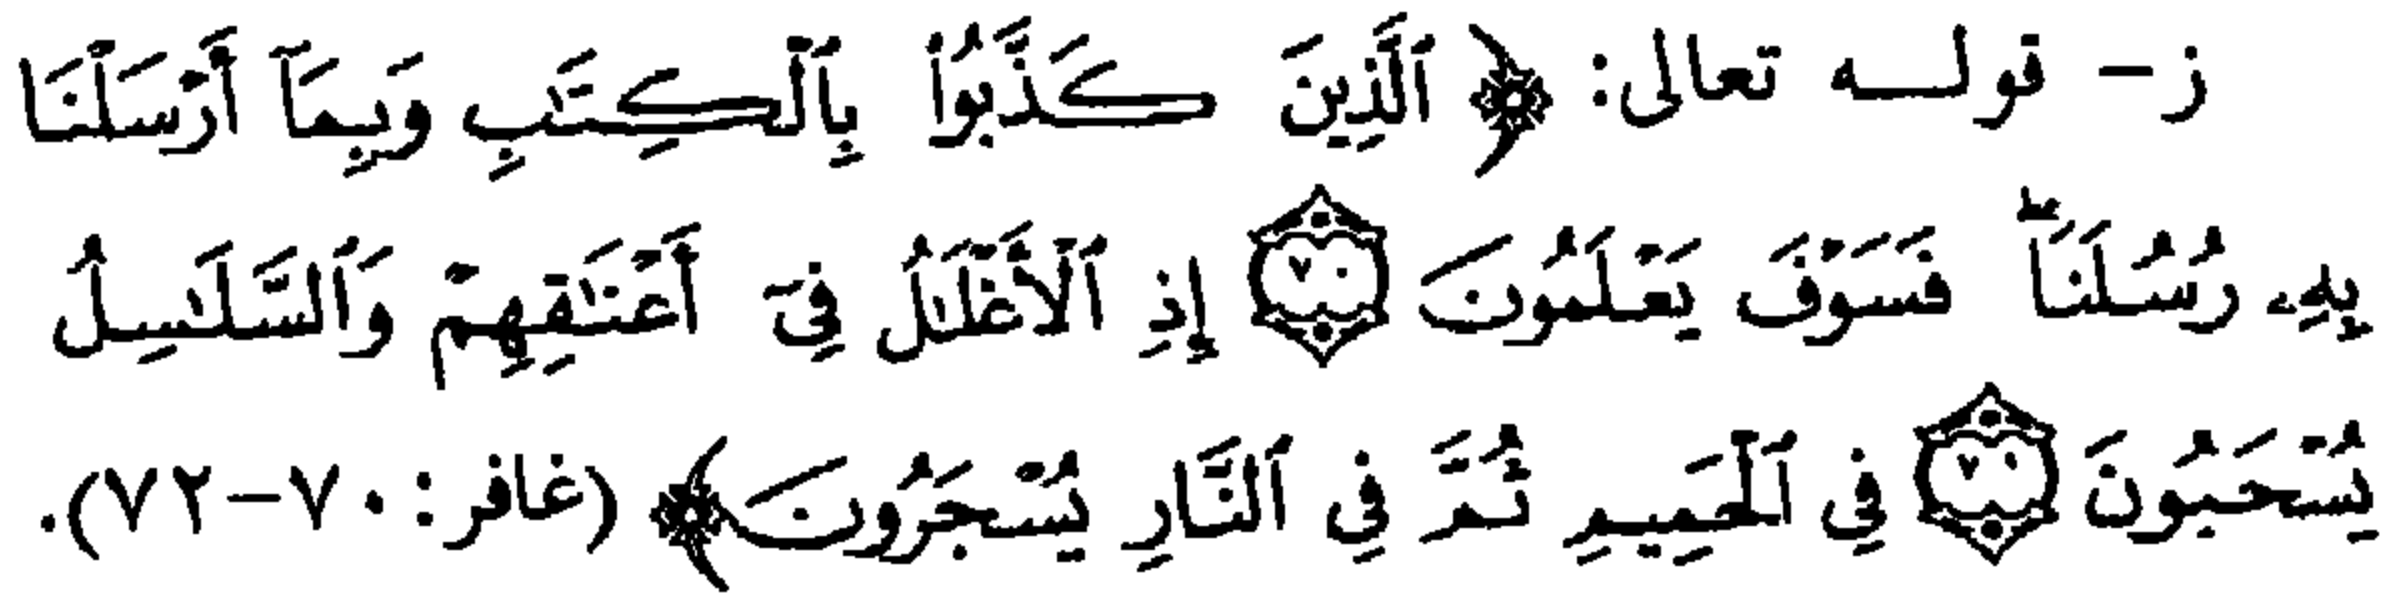 ز- قوله تعالى: ﴿ ٱلَّذِينَ كَذَّبُوا۟ بِٱلْكِتَـٰبِ وَبِمَآ أَرْسَلْنَا
بِهِۦ رُسُلَنَا ۖ فَسَوْفَ يَعْلَمُونَ ۝٧٠ إِذِ ٱلْأَغْلَـٰلُ فِىٓ أَعْنَـٰقِهِمْ وَٱلسَّلَـٰسِلُ
يُسْحَبُونَ ۝٧١ فِى ٱلْحَمِيمِ ثُمَّ فِى ٱلنَّارِ يُسْجَرُونَ﴾ (غافر: ٧٠-٧٢).